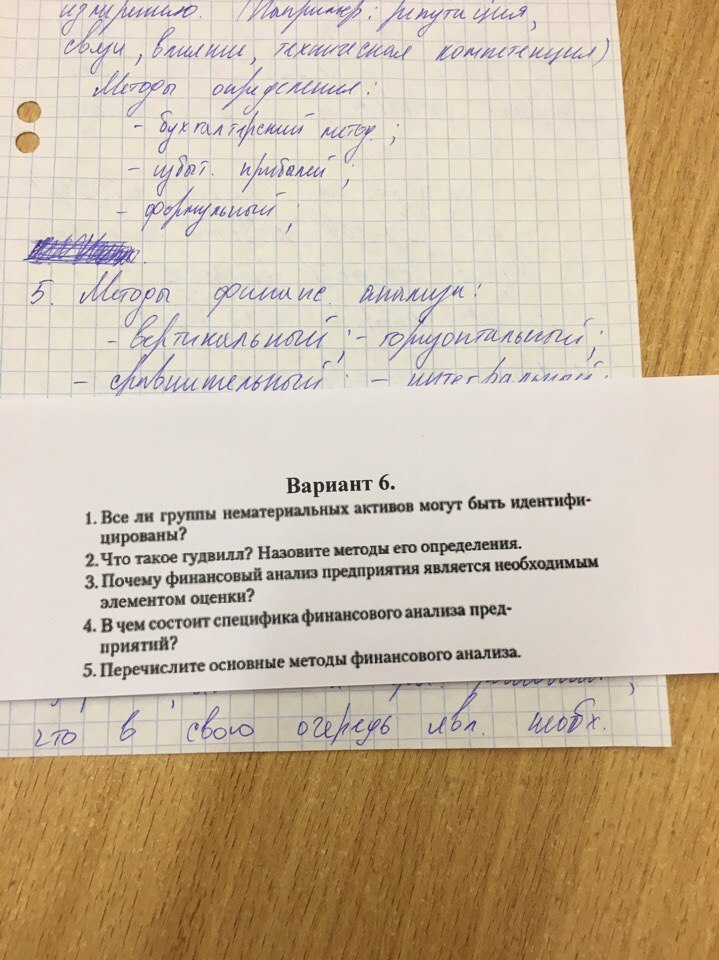 измерению. (Например: репутация,
связи, влияние, техническая компетенция)
Методы определения:
- бухгалтерский метод;
- избыт. прибылей;
- формульный;
5. Методы финанс. анализа:
- вертикальный; - горизонтальный;
- сравнительный; - интегральный;
Вариант 6.
1. Все ли группы нематериальных активов могут быть идентифи-
цированы?
2. Что такое гудвилл? Назовите методы его определения.
3. Почему финансовый анализ предприятия является необходимым
элементом оценки?
4. В чем состоит специфика финансового анализа пред-
приятий?
5. Перечислите основные методы финансового анализа.
что в свою очередь явл. необх.